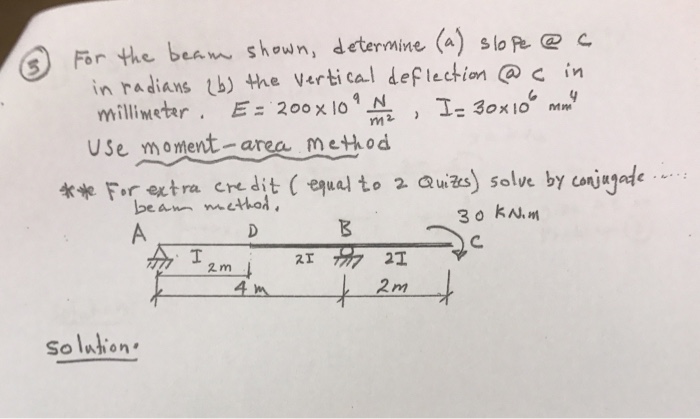 3 For the beam shown, determine (a) slope @ C
in radians (b) the vertical deflection @ C in
millimeter. E = 200 x 10⁹ N/m² , I = 30x10⁶ mm⁴
Use moment-area method
** For extra credit (equal to 2 Quizes) solve by conjugate .....
beam method.
30 KN.m
A D B C
I 2I 2I
2m
4m 2m
Solution.